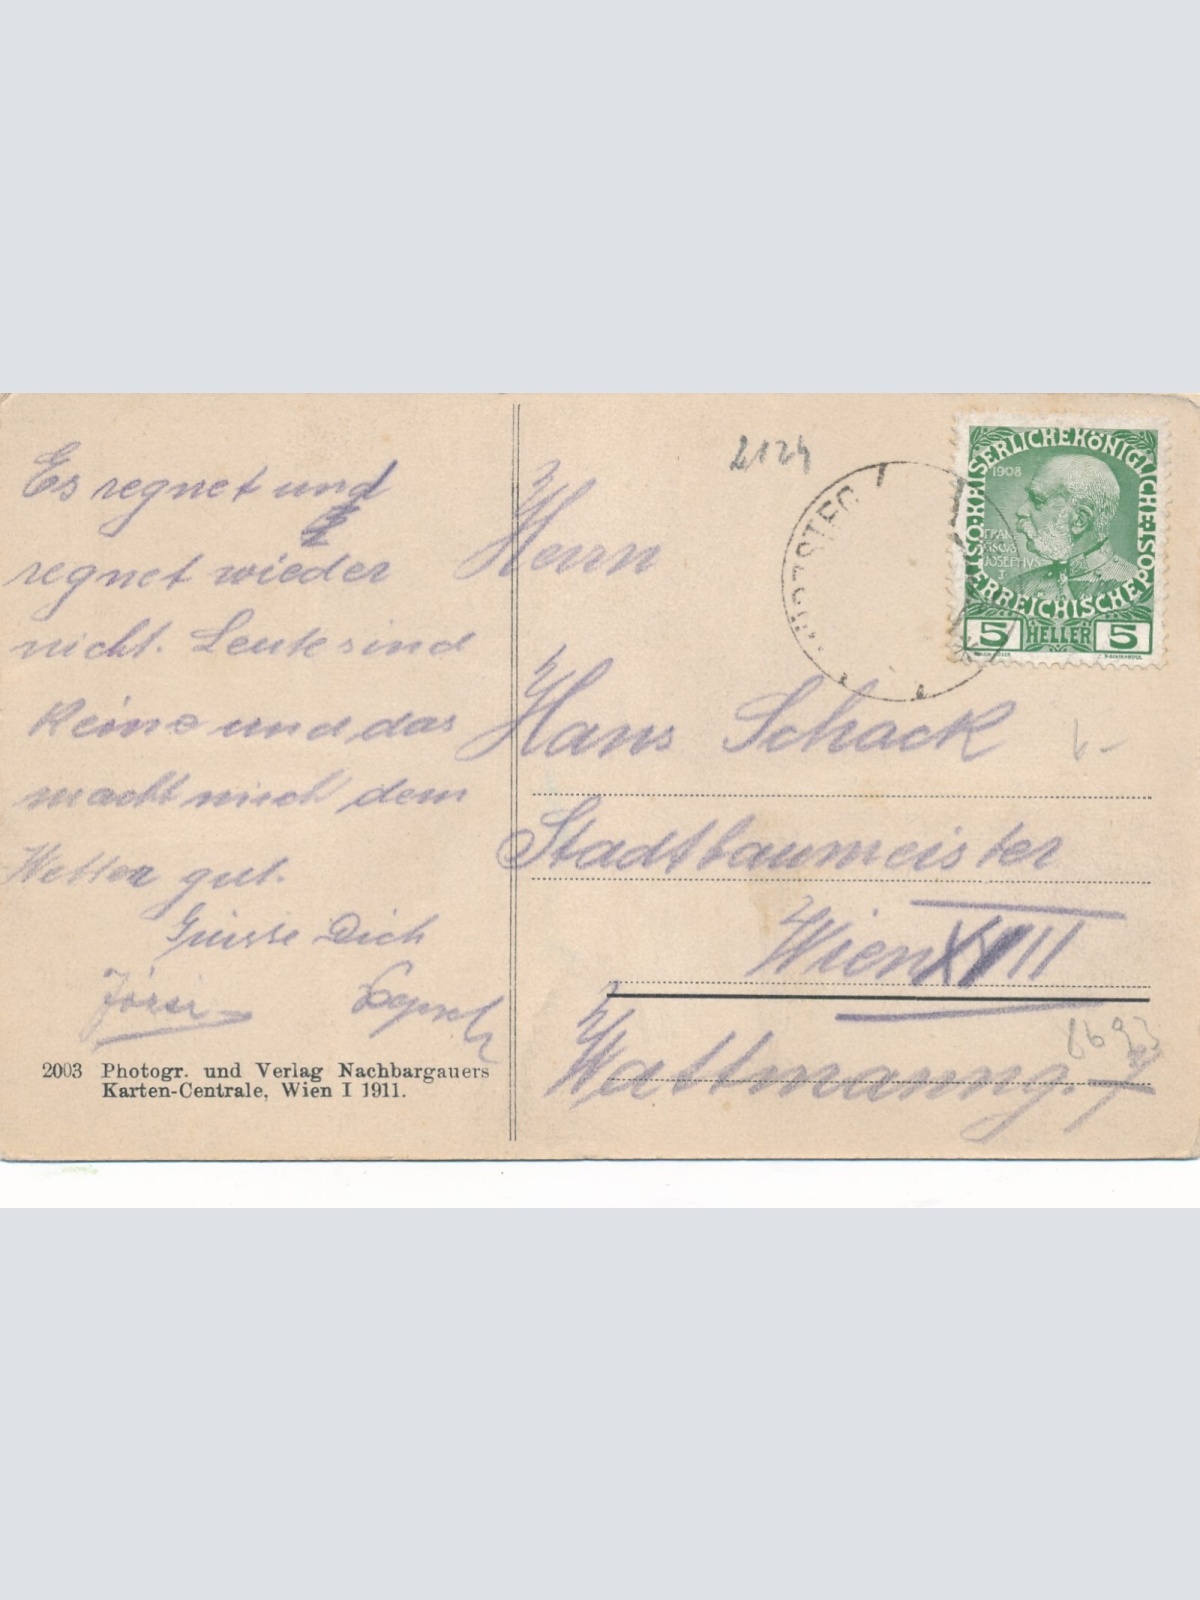 Es regnet und
regnet wieder
nicht. Leute sind
keine und das
macht mich dem
Wetter gut.
Grüsse Dich
2003 Photogr. und Verlag Nachbargauers
Karten-Centrale, Wien I 1911.
2124
KAISERLICHE KÖNIGLICHE ÖSTERREICHISCHE POST
1908
FRANCISCUS JOSEPHUS I
5 HELLER 5
Herrn
Hans Schack
Stadtbaumeister
Wien XVIII
Wattmanng. 7